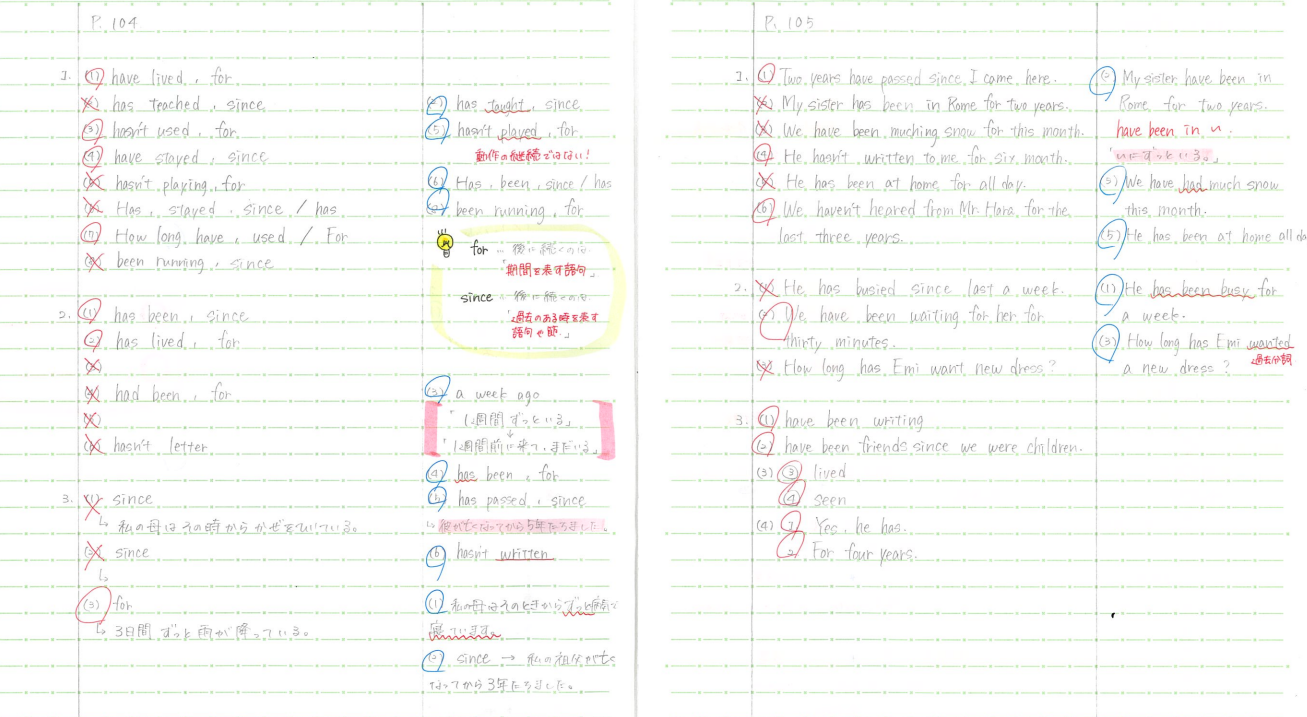 P. 104
1. (1) have lived, for
(2) has teached, since
(3) hasn't used, for
(4) have stayed, since
(5) hasn't playing, for
(6) Has, stayed, since / has
(7) How long, have, used / For
(8) been running, since
2. (1) has been, since
(2) has lived, for
(3)
(4) had been, for
(5)
(6) hasn't letter
3. (1) since
↳ 私の母はその時からかぜをひいている。
(2) since
↳
(3) for
↳ 3日間ずっと雨が降っている。
(2) has taught, since
(5) hasn't played, for
動作の継続ではない!
(6) Has, been, since / has
been running, for
for … 後に続くのは
「期間を表す語句」
since … 後に続くのは
「過去のある時を表す
語句や節」
(3) a week ago
「1週間ずっといる」
↓
「1週間前に来て、まだいる」
(4) has been, for
(5) has passed, since
↳ 彼が亡くなってから5年たちました
(6) hasn't written
(1) 私の母はそのときからずっと病気で
寝ています。
(2) since → 私の祖父が亡く
なってから3年たちました。
P. 105
1. (1) Two years have passed since I came here.
(2) My sister has been in Rome for two years.
(3) We have been muching snow for this month.
(4) He hasn't written to me for six month.
(5) He has been at home for all day.
(6) We haven't heared from Mr. Hara for the
last three years.
2. (1) He has busied since last a week.
(2) We have been waiting for her for
thirty minutes.
(3) How long has Emi want new dress?
3. (1) have been writing
(2) have been friends since we were children.
(3) ③ lived
④ seen
(4) 1 Yes, he has.
2 For four years.
(2) My sister have been in
Rome for two years.
have been in ~
「~にずっといる。」
(3) We have had much snow
this month.
(5) He has been at home all da
(1) He has been busy for
a week.
(3) How long has Emi wanted
過去分詞
a new dress?